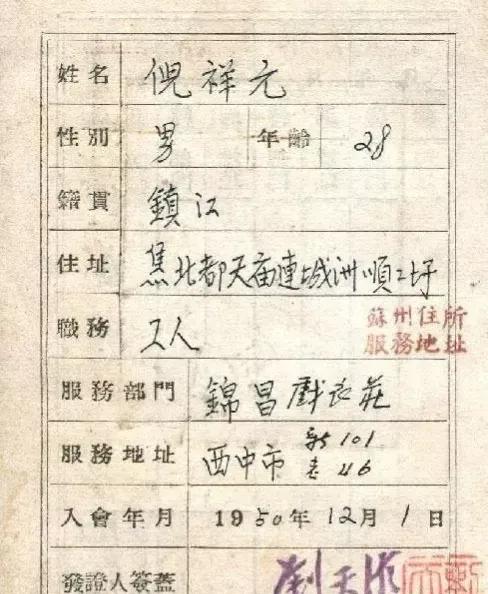 姓名 倪祥元
性別 男 年齡 28
籍貫 鎮江
住址 焦北都天庙連城洲順二圩
職務 工人
蘇州住所
服務地址
服務部門 錦昌戲衣莊
服務地址 西中市 新101
老46
入會年月 1950年12月1日
發證人簽蓋 劉天